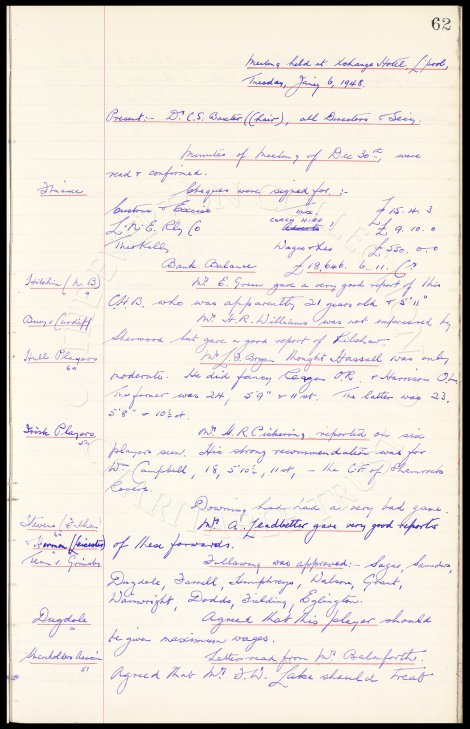 62
Meeting held at Xchange Hotel, L'pool,
Tuesday, Jan'y 6, 1948.
Present:- Dr C.S. Baxter (Chair), all Directors & Secy.
Minutes of Meeting of Dec 30th, were
read & confirmed.
Finance Cheques were signed for:-
Customs & Excise Tax. £15. 4. 3
L.N.E. Rly Co Coach Hire £9. 10. 0
Theo Kelly Wages & Les £550. 0. 0
Bank Balance £18,646. 6. 11. Cr
Hitchin (N.B) Mr E. Green gave a very good report of this
C.H.B. who was apparently 21 years old & 5'11"
Bury v Cardiff Mr. H.R. Williams was not impressed by
Sherwood but gave a good report of
Hull Players 60 Mr J.B. Bryan thought Hassall was only
moderate. He did fancy Reagan OR. & Harrison OL.
The former was 24, 5'9" & 11 st. The latter was 23,
5'8" & 10½ st.
Irish Players 59 Mr. H.R. Pickering reported on six
players seen. His strong recommendation was for
Wm Campbell, 18, 5'10½, 11 st, - the C.F. of Shamrock
Rovers.
Downing had had a very bad game.
Stevens (Fulham) 60 Mr. A. Leadbetter gave very good reports
& Harmon (Leicester) of these forwards.
Team v Grimsby Following was approved:- Sagar, Saunders,
Dugdale, Farrell, Humphreys, Watson, Grant,
Wainwright, Dodds, Fielding, Eglington.
Dugdale Agreed that this player should
be given maximum wages.
Shareholders Assc'n 51 Letter read from Mr Balmforth.
Agreed that Mr F.W. Lake should treat